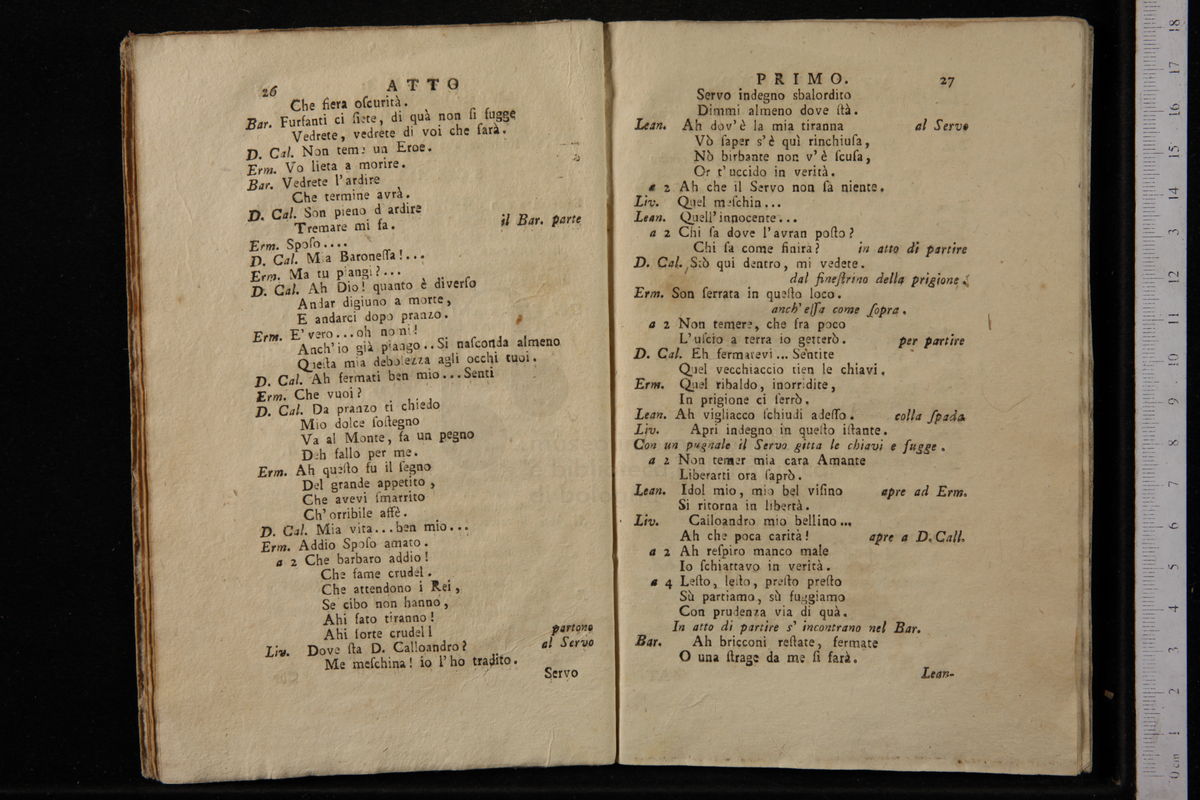 26 ATTO
Che fiera oſcurità.
Bar. Furfanti ci ſiete, di quà non ſi fugge
Vedrete, vedrete di voi che ſarà.
D. Cal. Non teme un Eroe.
Erm. Vo lieta a morire.
Bar. Vedrete l'ardire
Che termine avrà.
D. Cal. Son pieno d ardire
Tremare mi fa. il Bar. parte
Erm. Spoſo....
D. Cal. Mia Baroneſſa!...
Erm. Ma tu piangi?...
D. Cal. Ah Dio! quanto è diverſo
Andar digiuno a morte,
E andarci dopo pranzo.
Erm. E' vero...oh nomi!
Anch'io già piango..Si naſconda almeno
Queſta mia debolezza agli occhi tuoi.
D. Cal. Ah fermati ben mio...Senti
Erm. Che vuoi?
D. Cal. Da pranzo ti chiedo
Mio dolce ſoſtegno
Va al Monte, fa un pegno
Deh fallo per me.
Erm. Ah queſto fu il ſegno
Del grande appetito,
Che avevi ſmarrito
Ch'orribile affè.
D. Cal. Mia vita...ben mio...
Erm. Addio Spoſo amato.
a 2 Che barbaro addio!
Che fame crudel.
Che attendono i Rei,
Se cibo non hanno,
Ahi fato tiranno!
Ahi ſorte crudel! partono
Liv. Dove ſta D. Calloandro? al Servo
Me meſchina! io l'ho tradito.
Servo
PRIMO. 27
Servo indegno sbalordito
Dimmi almeno dove ſtà.
Lean. Ah dov'è la mia tiranna al Servo
Vò ſaper s'è quì rinchiuſa,
Nò birbante non v'è ſcuſa,
Or t'uccido in verità.
a 2 Ah che il Servo non ſa niente.
Liv. Quel meſchin...
Lean. Quell'innocente...
a 2 Chi ſa dove l'avran poſto?
Chi ſa come finirà? in atto di partire
D. Cal. Stò qui dentro, mi vedete.
dal fineſtrino della prigione.
Erm. Son ſerrata in queſto loco.
anch'eſſa come ſopra.
a 2 Non temere, che fra poco
L'uſcio a terra io getterò. per partire
D. Cal. Eh fermatevi... Sentite
Quel vecchiaccio tien le chiavi.
Erm. Quel ribaldo, inorridite,
In prigione ci ſerrò.
Lean. Ah vigliacco ſchiudi adeſſo. colla ſpada
Liv. Apri indegno in queſto iſtante.
Con un pugnale il Servo gitta le chiavi e fugge.
a 2 Non temer mia cara Amante
Liberarti ora ſaprò.
Lean. Idol mio, mio bel viſino apre ad Erm.
Si ritorna in libertà.
Liv. Calloandro mio bellino...
Ah che poca carità! apre a D. Call.
a 2 Ah reſpiro manco male
Io ſchiattavo in verità.
a 4 Leſto, leſto, preſto preſto
Sù partiamo, sù fuggiamo
Con prudenza via di quà.
In atto di partire s' incontrano nel Bar.
Bar. Ah bricconi reſtate, fermate
O una ſtrage da me ſi farà.
Lean-
0 cm 1 2 3 4 5 6 7 8 9 10 11 12 13 14 15 16 17 18